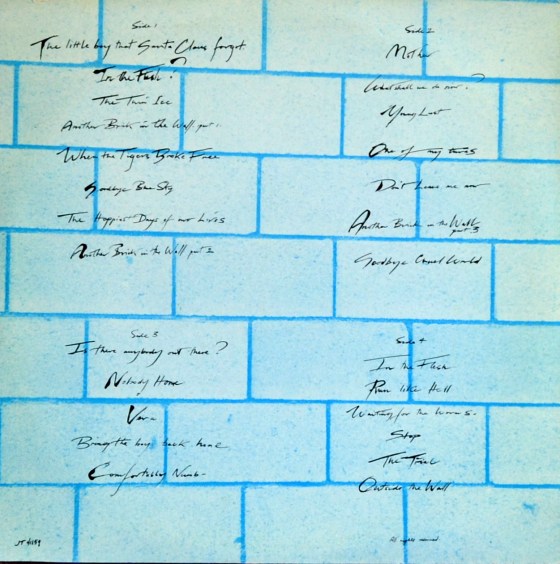 Side 1
The little boy that Santa Claus forgot
In the Flesh?
The Thin Ice
Another Brick in the Wall part 1
When the Tigers Broke Free
Goodbye Blue Sky
The Happiest Days of our Lives
Another Brick in the Wall part 2
Side 2
Mother
What shall we do now?
Young Lust
One of my turns
Don't Leave me now
Another Brick in the Wall
part 3
Goodbye Cruel World
Side 3
Is there anybody out there?
Nobody Home
Vera
Bring the boys back home
Comfortably Numb
Side 4
In the Flesh
Run like Hell
Waiting for the Worms
Stop
The Trial
Outside the Wall
All rights reserved